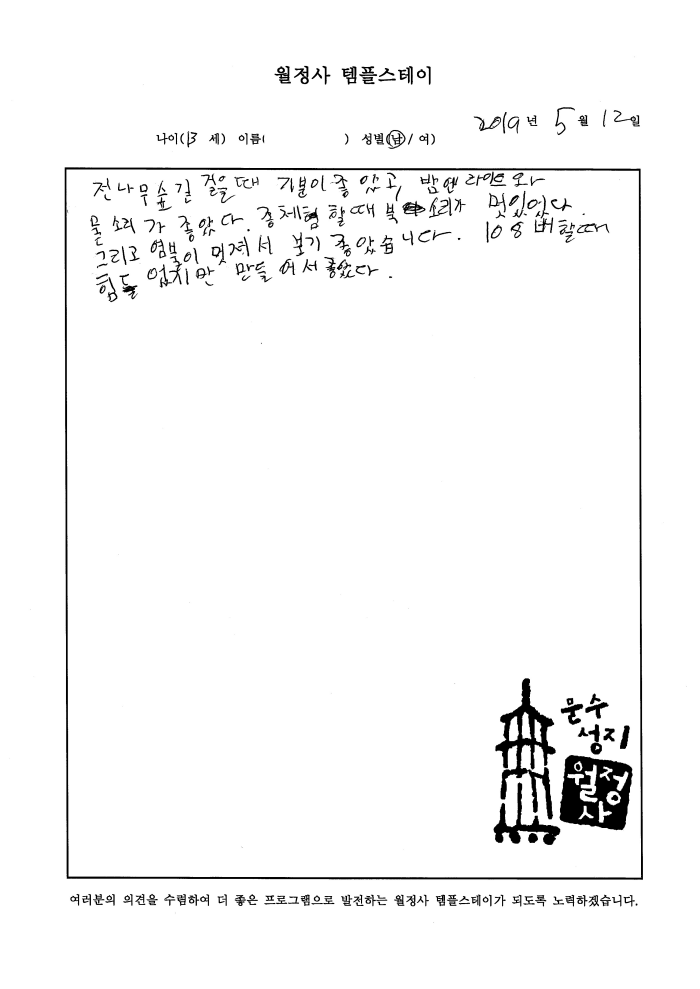 월정사 템플스테이
나이(13 세) 이름( ) 성별(남/여) 2019년 5월 12일
전나무숲길 걸을때 기분이 좋았고, 밤엔 라이트와
물소리가 좋았다. 종체험 할때 북 소리가 멋있었다.
그리고 염불이 멋져서 보기 좋았습니다. 108배할때
힘들었지만 만들어서 좋았다.
문수
성지
월정
사
여러분의 의견을 수렴하여 더 좋은 프로그램으로 발전하는 월정사 템플스테이가 되도록 노력하겠습니다.